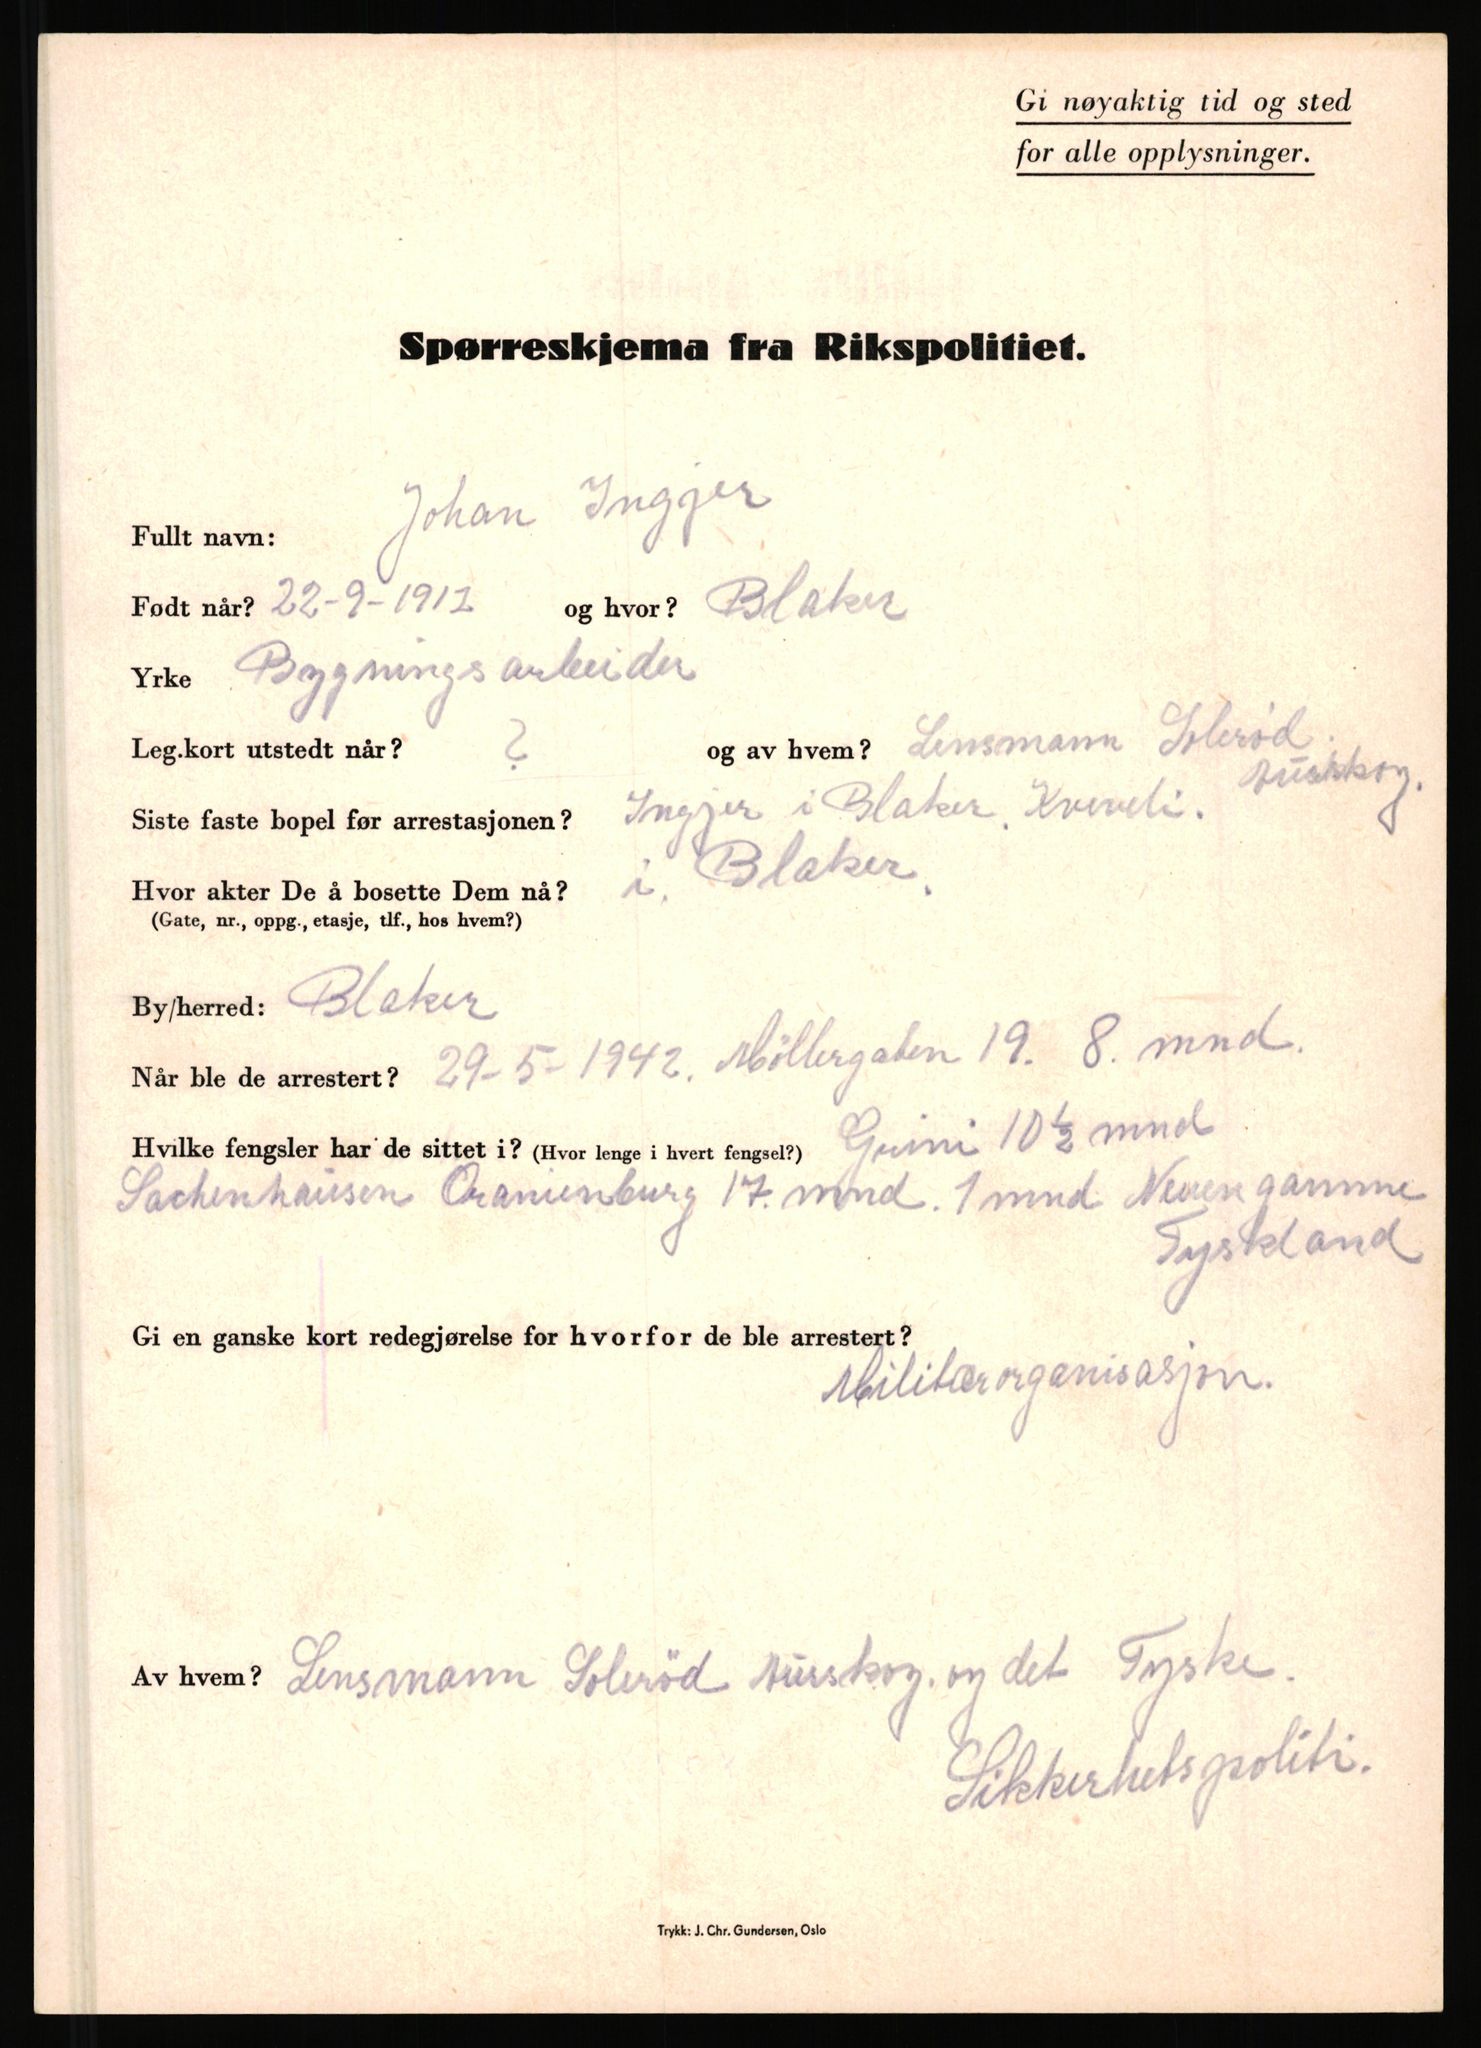 Gi nøyaktig tid og sted
for alle opplysninger.
Spørreskjema fra Rikspolitiet.
Fullt navn: Johan Ingjer
Født når? 22-9-1912 og hvor? Blaker
Yrke Bygningsarbeider
Leg.kort utstedt når? ? og av hvem? Lensmann Solerød.
Aurskog.
Siste faste bopel før arrestasjonen? Ingjer i Blaker. Kveveli.
Hvor akter De å bosette Dem nå? i. Blaker.
(Gate, nr., oppg., etasje, tlf., hos hvem?)
By/herred: Blaker
Når ble de arrestert? 29-5-1942. Möllergaten 19. 8. mnd.
Hvilke fengsler har de sittet i? (Hvor lenge i hvert fengsel?) Grini 10 ½ mnd
Sachenhausen Oranienburg 17. mnd. 1 mnd Neuengamme
Tyskland
Gi en ganske kort redegjørelse for hvorfor de ble arrestert?
Militærorganisasjon.
Av hvem? Lensmann Solerød Aurskog. og det Tyske.
Sikkerhetspoliti.
Trykk: J. Chr. Gundersen, Oslo